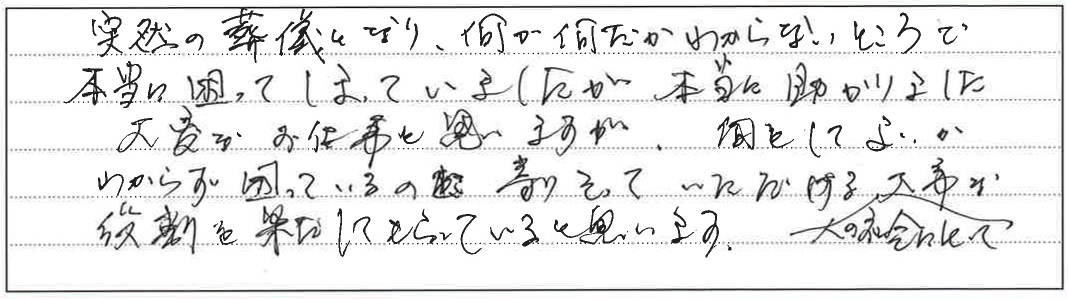 突然の葬儀となり、何が何だかわからないところで
本当に困ってしまっていましたが 本当に助かりました
大変なお仕事と思いますが、何をしてよいか
わからず困っているの 寄りそって いただける 大事な
役割を果たしてもらっていると思います。